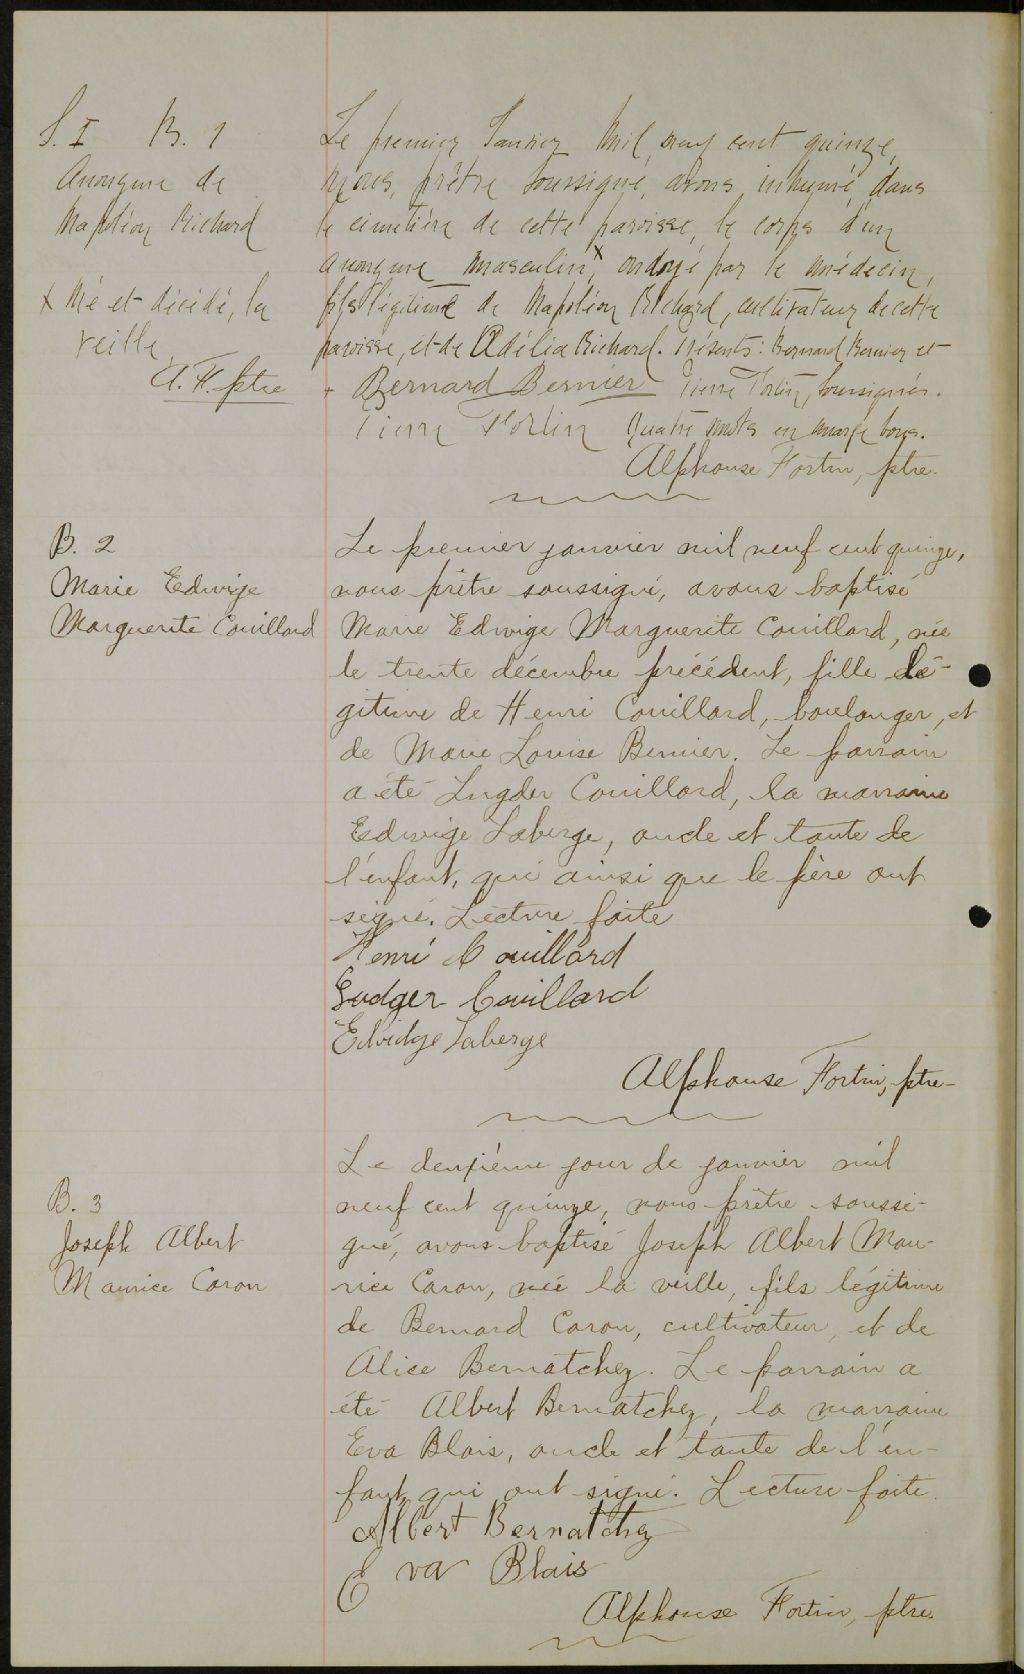 S. I B. 1
Anonyme de
Napoléon Richard
x Né et décédé, la
veille
A. F. ptre
Le premier Janvier mil neuf cent quinze,
nous, prêtre soussigné, avons inhumé, dans
le cimetière de cette paroisse, le corps d'un
anonyme masculin,x ondoyé par le médecin,
fils légitime de Napoléon Richard, cultivateur de cette
paroisse, et de Adélia Richard. Présents: Bernard Bernier et
+ Bernard Bernier Pierre Fortin, soussignés.
Pierre Fortin Quatre mots en marge bons.
Alphonse Fortin, ptre.
B. 2
Marie Edwige
Marguerite Couillard
Le premier janvier mil neuf cent quinze,
nous prêtre soussigné, avons baptisé
Marie Edwige Marguerite Couillard, née
le trente décembre précédent, fille lé-
gitime de Henri Couillard, boulanger, et
de Marie Louise Bernier. Le parrain
a été Lugder Couillard, la marraine
Edwige Laberge, oncle et tante de
l'enfant, qui ainsi que le père ont
signé. Lecture faite
Henri Couillard
Ludger Couillard
Edvidge Laberge
Alphonse Fortin, ptre-
B. 3
Joseph Albert
Maurice Caron
Le deuxième jour de janvier mil
neuf cent quinze, nous prêtre soussi-
gné, avons baptisé Joseph Albert Mau-
rice Caron, née la veille, fils légitime
de Bernard Caron, cultivateur, et de
Alice Bernatchez. Le parrain a
été Albert Bernatchez, la marraine
Eva Blais, oncle et tante de l'en-
fant qui ont signé. Lecture faite.
Albert Bernatchez
Eva Blais
Alphonse Fortin, ptre.